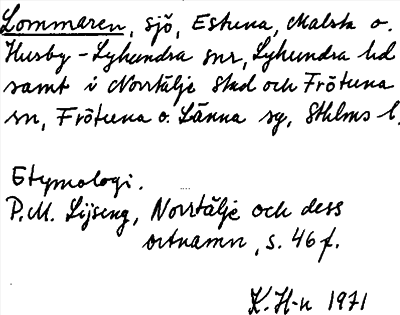 Lommaren, sjö, Estuna, Malsta o.
Husby-Lyhundra snr, Lyhundra hd
samt i Norrtälje stad och Frötuna
sn, Frötuna o. Länna sg, Sthlms l.
Etymologi.
P.M. Lijseng, Norrtälje och dess
ortnamn, s. 46 f.
K. H-n 1971